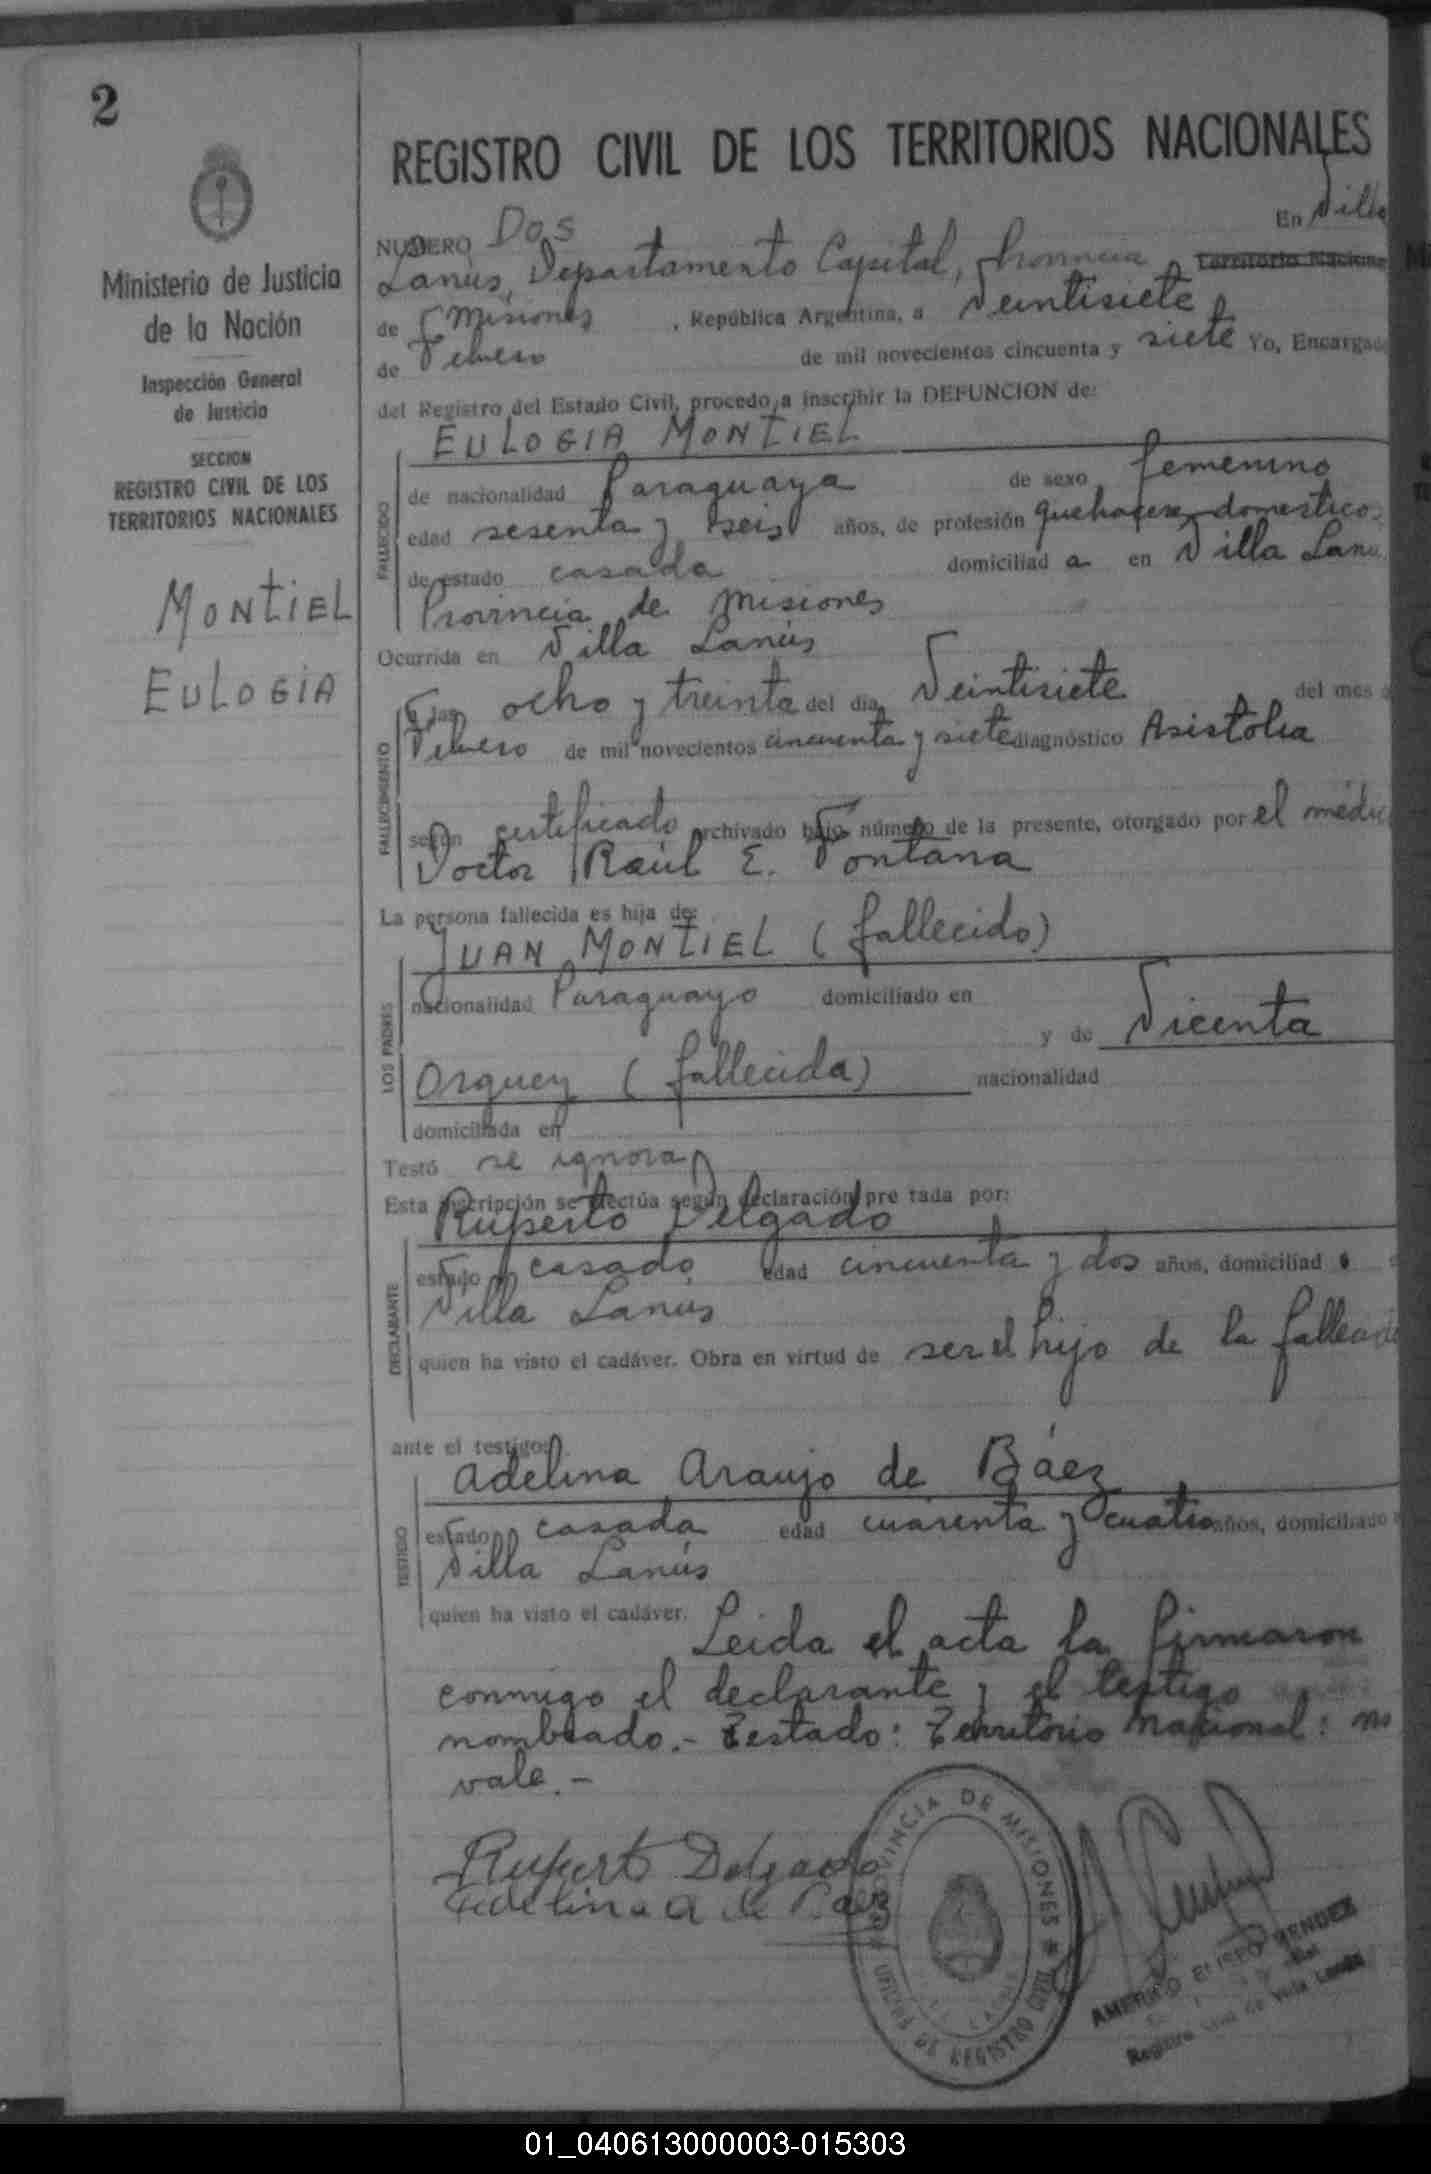 2
REGISTRO CIVIL DE LOS TERRITORIOS NACIONALES
Ministerio de Justicia
de la Nación
Inspección General
de Justicia
SECCION
REGISTRO CIVIL DE LOS
TERRITORIOS NACIONALES
MONTIEL
EULOGIA
NUMERO Dos En Villa
Lanús, Departamento Capital, Provincia Territorio Naciona
de Misiones , República Argentina, a Veintisiete
de Febrero de mil novecientos cincuenta y siete Yo, Encargado
del Registro del Estado Civil, procedo a inscribir la DEFUNCION de:
EULOGIA MONTIEL
FALLECIDO
de nacionalidad Paraguaya de sexo femenino
edad sesenta y seis años, de profesión quehaceres domesticos
de estado casada domiciliad a en Villa Lanu
Provincia de Misiones
Ocurrida en Villa Lanús
FALLECIMIENTO
a las ocho y treinta del día Veintisiete del mes d
Febrero de mil novecientos cincuenta y siete diagnóstico Asistolia
según certificado archivado bajo número de la presente, otorgado por el médic
Doctor Raúl E. Fontana
La persona fallecida es hija de:
JUAN MONTIEL (fallecido)
LOS PADRES
nacionalidad Paraguayo domiciliado en
y de Vicenta
Orguey (fallecida) nacionalidad
domiciliada en
Testó se ignora
Esta inscripción se efectúa según declaración pre tada por:
Ruperto Delgado
DECLARANTE
estado casado edad cincuenta y dos años, domiciliad o e
Villa Lanús
quien ha visto el cadáver. Obra en virtud de ser el hijo de la fallecida
ante el testigo:
Adelina Araujo de Báez
TESTIGO
estado casada edad cuarenta y cuatro años, domiciliado e
Villa Lanús
quien ha visto el cadáver. Leida el acta la firmaron
conmigo el declarante y el testigo
nombrado.- Testado: Territorio Nacional: no
vale.-
Ruperto Delgado
Adelina A de Baez
PROVINCIA DE MISIONES
OFICINA DE REGISTRO CIVIL
AMERICO ELISEO MENDEZ
Registro Civil de Villa Lanús
01_040613000003-015303